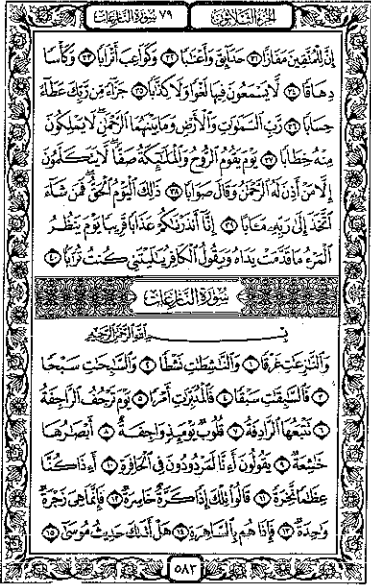 الجزء الثلاثون ٧٩ سورة النازعات
إِنَّ لِلْمُتَّقِينَ مَفَازًا ٣١ حَدَائِقَ وَأَعْنَابًا ٣٢ وَكَوَاعِبَ أَتْرَابًا ٣٣ وَكَأْسًا
دِهَاقًا ٣٤ لَّا يَسْمَعُونَ فِيهَا لَغْوًا وَلَا كِذَّابًا ٣٥ جَزَاءً مِّن رَّبِّكَ عَطَاءً
حِسَابًا ٣٦ رَّبِّ السَّمَٰوَٰتِ وَالْأَرْضِ وَمَا بَيْنَهُمَا الرَّحْمَٰنِ لَا يَمْلِكُونَ
مِنْهُ خِطَابًا ٣٧ يَوْمَ يَقُومُ الرُّوحُ وَالْمَلَٰئِكَةُ صَفًّا لَّا يَتَكَلَّمُونَ
إِلَّا مَنْ أَذِنَ لَهُ الرَّحْمَٰنُ وَقَالَ صَوَابًا ٣٨ ذَٰلِكَ الْيَوْمُ الْحَقُّ فَمَن شَاءَ
اتَّخَذَ إِلَىٰ رَبِّهِ مَـَٔابًا ٣٩ إِنَّا أَنذَرْنَٰكُمْ عَذَابًا قَرِيبًا يَوْمَ يَنظُرُ
الْمَرْءُ مَا قَدَّمَتْ يَدَاهُ وَيَقُولُ الْكَافِرُ يَٰلَيْتَنِي كُنتُ تُرَٰبًا ٤٠
سورة النازعات
بِسْمِ اللَّهِ الرَّحْمَٰنِ الرَّحِيمِ
وَالنَّٰزِعَٰتِ غَرْقًا ١ وَالنَّٰشِطَٰتِ نَشْطًا ٢ وَالسَّٰبِحَٰتِ سَبْحًا
٣ فَالسَّٰبِقَٰتِ سَبْقًا ٤ فَالْمُدَبِّرَٰتِ أَمْرًا ٥ يَوْمَ تَرْجُفُ الرَّاجِفَةُ
٦ تَتْبَعُهَا الرَّادِفَةُ ٧ قُلُوبٌ يَوْمَئِذٍ وَاجِفَةٌ ٨ أَبْصَٰرُهَا
خَٰشِعَةٌ ٩ يَقُولُونَ أَءِنَّا لَمَرْدُودُونَ فِي الْحَافِرَةِ ١٠ أَءِذَا كُنَّا
عِظَٰمًا نَّخِرَةً ١١ قَالُوا تِلْكَ إِذًا كَرَّةٌ خَاسِرَةٌ ١٢ فَإِنَّمَا هِيَ زَجْرَةٌ
وَٰحِدَةٌ ١٣ فَإِذَا هُم بِالسَّاهِرَةِ ١٤ هَلْ أَتَىٰكَ حَدِيثُ مُوسَىٰ ١٥
٥٨٣